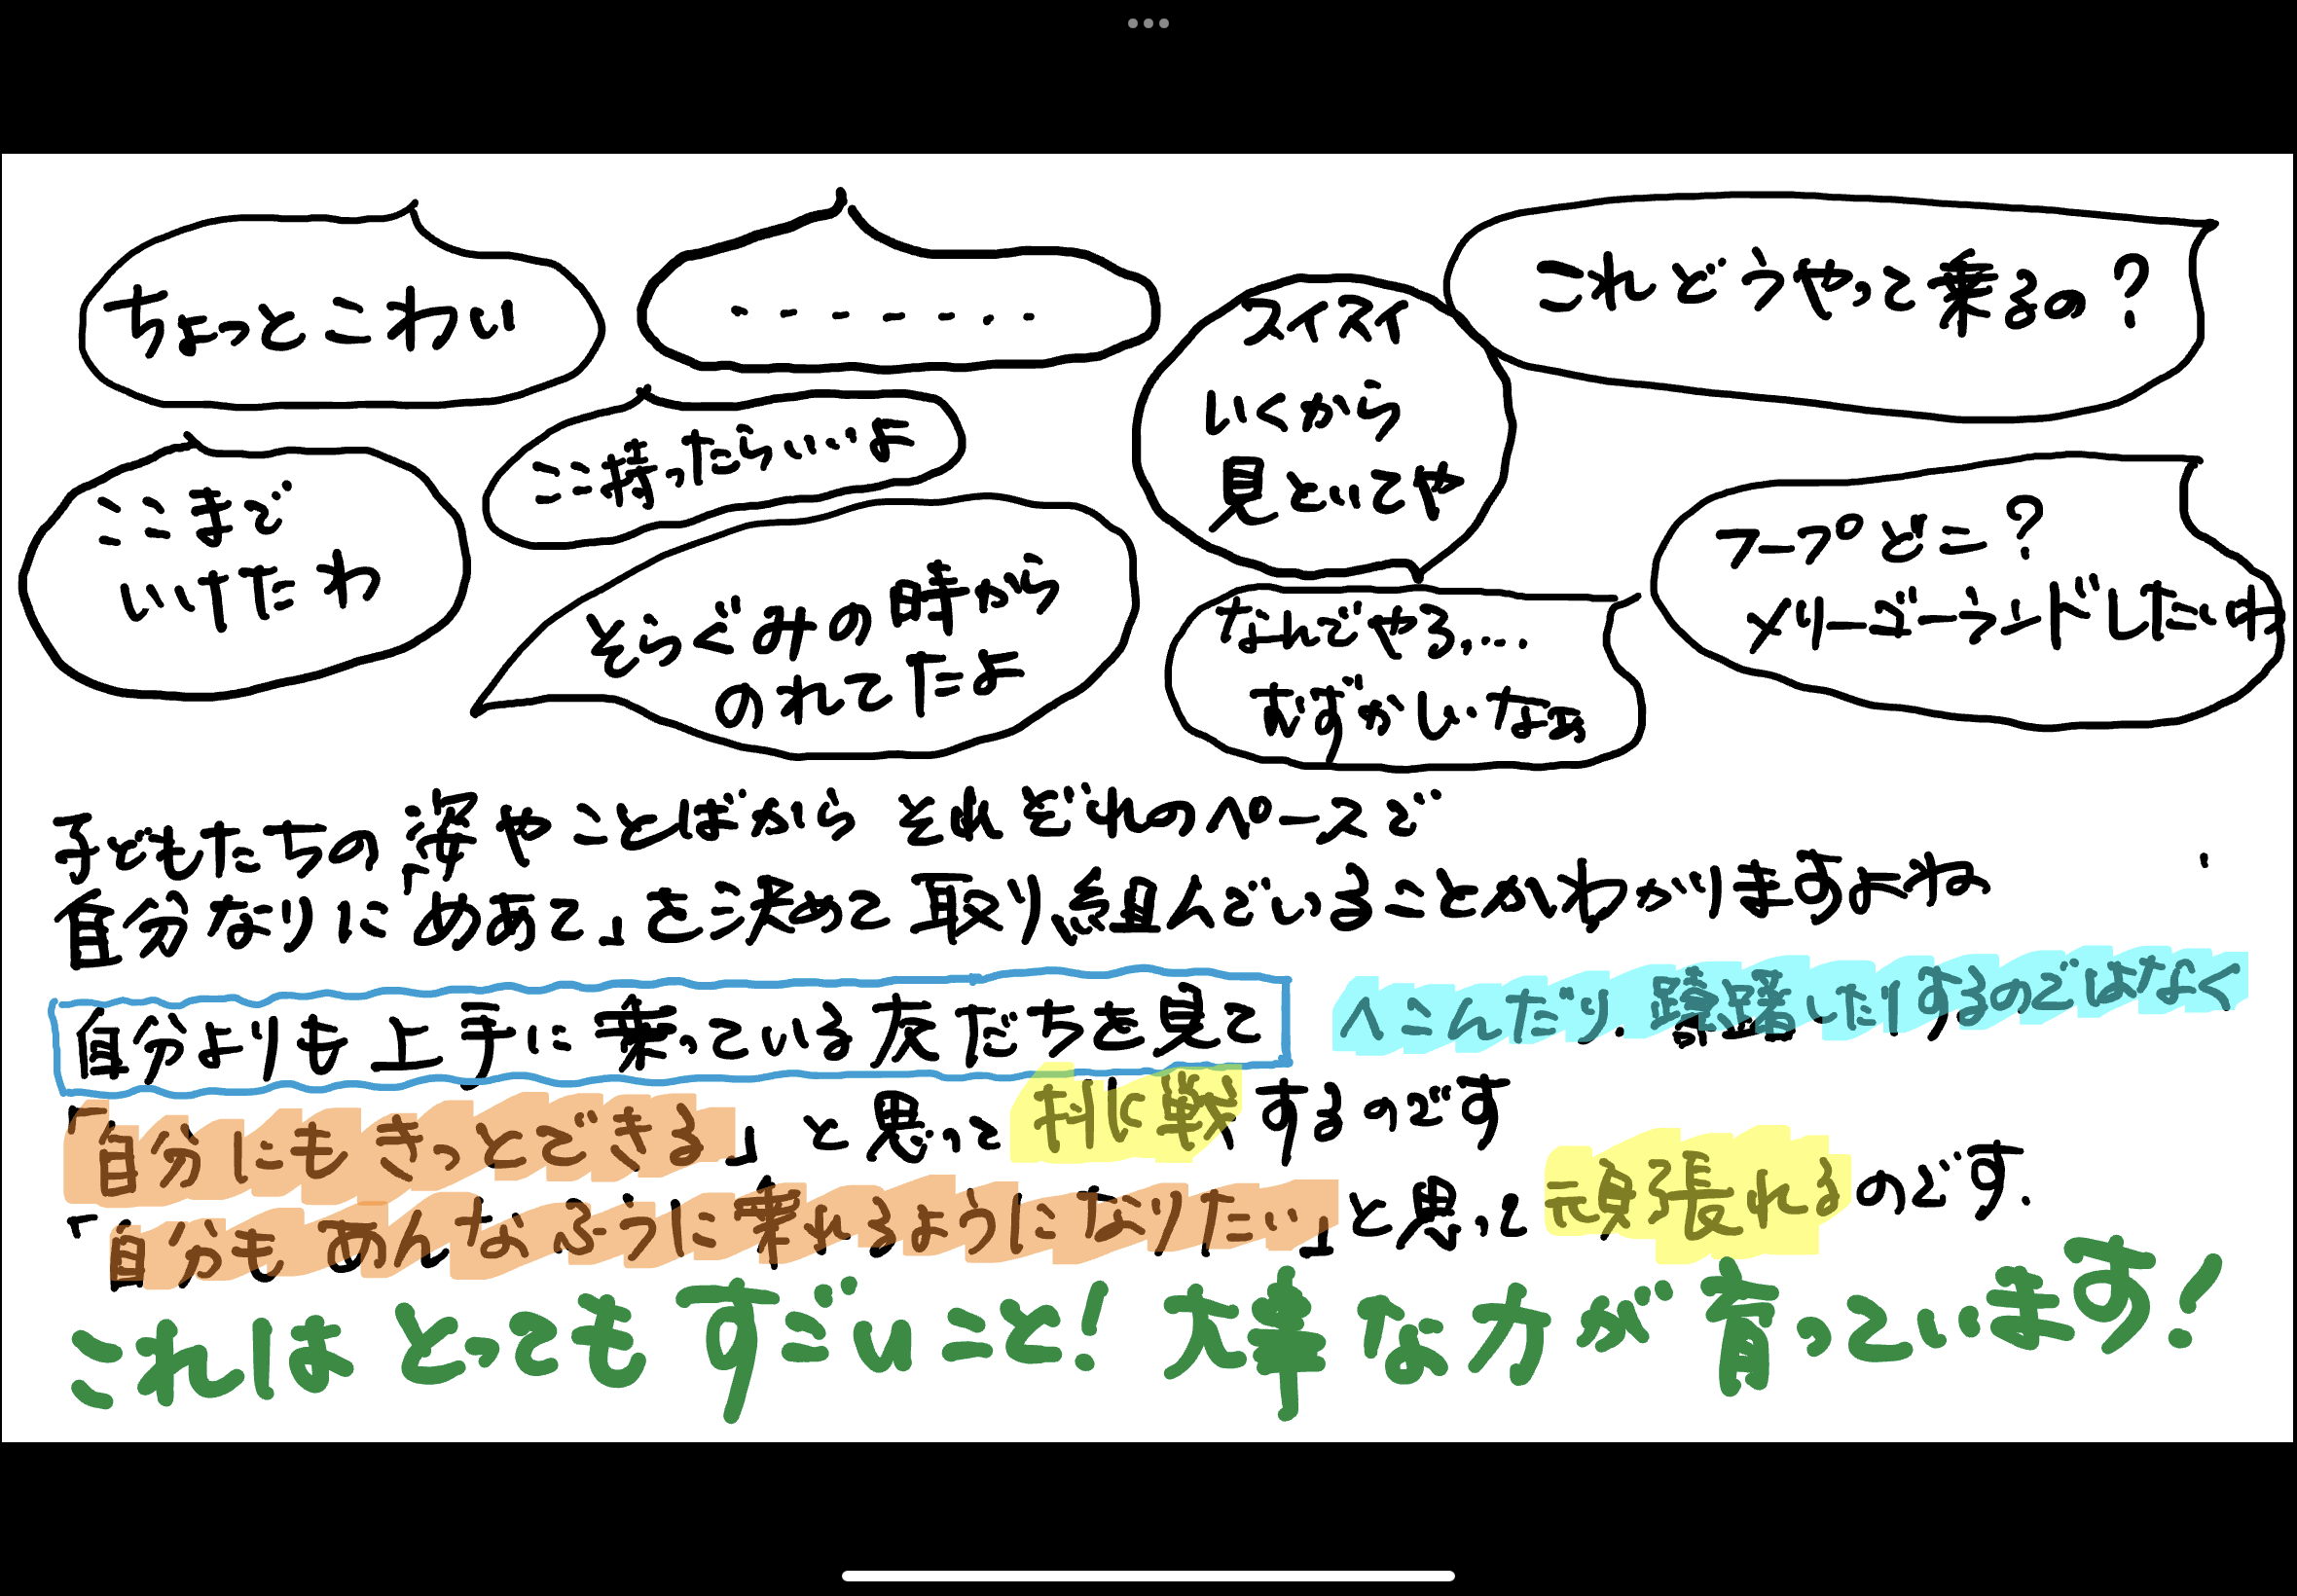 ちょっとこわい
........
スイスイ
いくから
見といてや
これどうやって乗るの?
ここまで
いけたわ
ここ持ったらいいよ
そらぐみの時から
のれてたよ
なんでやろ...
むずかしいなぁ
フープどこ?
メリーゴーランドしたいわ
子どもたちの姿やことばからそれぞれのペースで
自分なりに「めあて」を決めて取り組んでいることがわかりますよね
自分よりも上手に乗っている友だちを見て へこんだり、躊躇したりするのではなく
「自分にもきっとできる」と思って挑戦するのです
「自分もあんなふうに乗れるようになりたい」と思って頑張れるのです.
これはとってもすごいこと!大事な力が育っています!